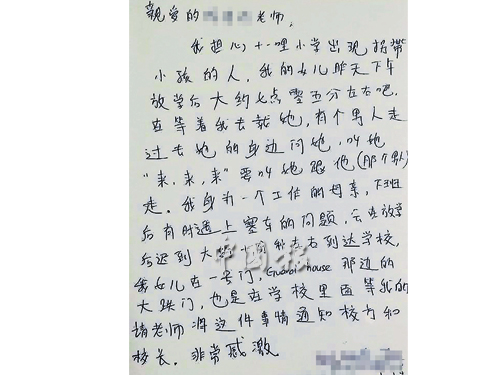 親爱的 老师,
我担心十一哩小学出现拐带
小孩的人, 我的女儿昨天下午
放学后大约七点零五分左右吧.
在等着我去载她, 有个男人走
过去她的身边问她, 叫她
"来, 来, 来" 要叫她跟他(那个男人)
走. 我身为一个工作的母亲, 下班
后有时遇上塞车的问题, 会在放学
后迟到大 左右到达学校,
我女儿在一号门, Guard house 那边的
大铁门, 也是在学校里面等我的
请老师将这件事情通知校方和
校长. 非常感激
中國報